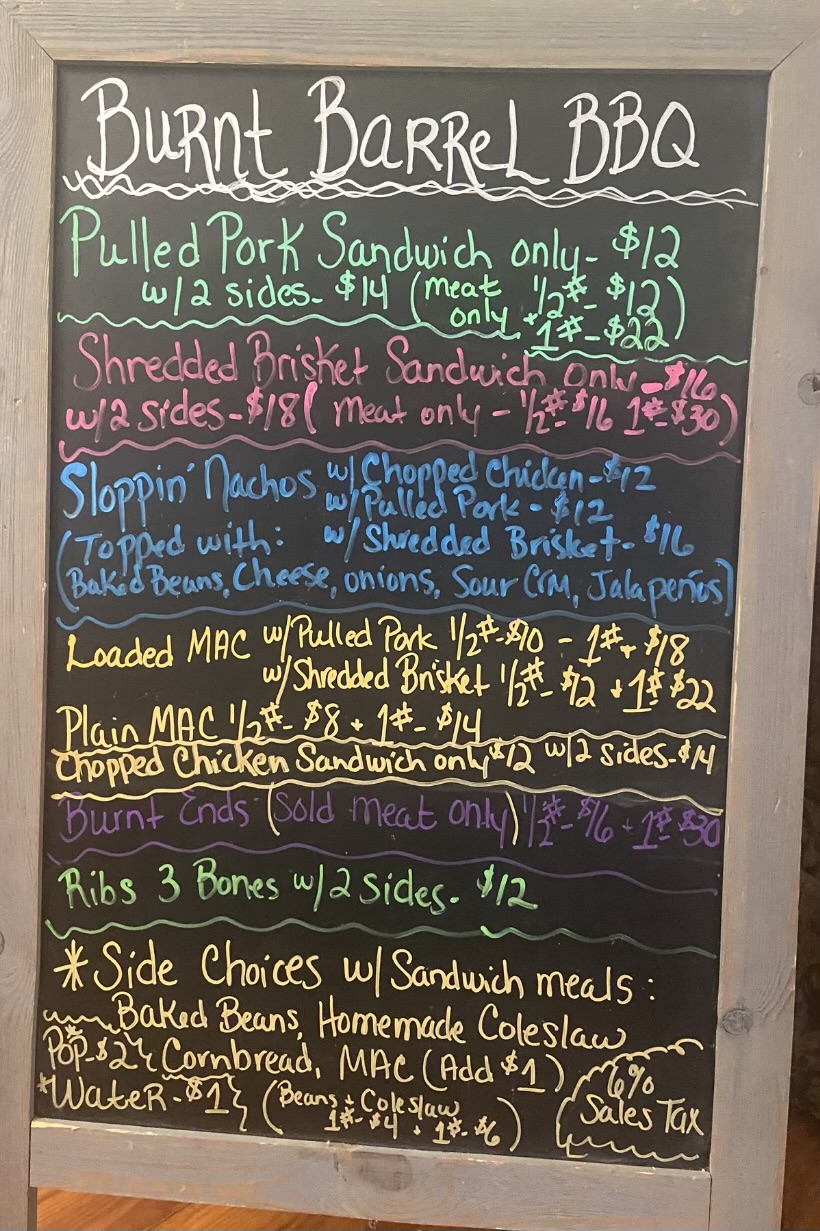 Burnt Barrel BBQ
Pulled Pork Sandwich only- $12
w/2 sides- $14 (meat only 1/2#- $12)
+ 1#-$22
Shredded Brisket Sandwich only-$16
w/2 sides-$18( Meat only - 1/2#-$16 1#-$30)
Sloppin' Nachos w/ Chopped Chicken-$12
w/Pulled Pork - $12
(Topped with: w/ Shredded Brisket- $16
Baked Beans, Cheese, onions, Sour Crm, Jalapeños)
Loaded MAC w/Pulled Pork 1/2#-$10 - 1#+ $18
w/Shredded Brisket 1/2#- $12 + 1#$22
Plain MAC 1/2#- $8 + 1#- $14
Chopped Chicken Sandwich only $12 w/2 sides-$14
Burnt Ends (Sold meat only) 1/2#-$16 + 1#$30
Ribs 3 Bones w/2 sides- $12
*Side Choices w/Sandwich meals:
Baked Beans, Homemade Coleslaw
Pop-$2 Cornbread, MAC (Add $1)
*Water-$1 (Beans + Coleslaw
1#-$4 + 1#-$6)
6%
Sales Tax